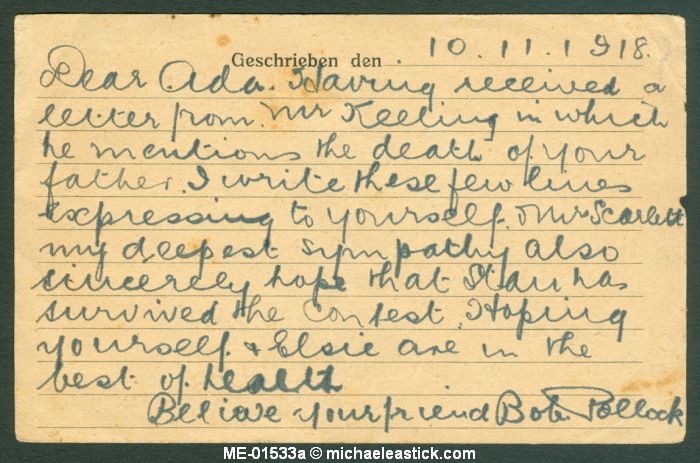 Geschrieben den 10.11.1918.
Dear Ada. Having received a
letter from Mr Keeling in which
he mentions the death of your
father. I write these few lines
expressing to yourself. & Mrs Scarlett
my deepest sympathy also
sincerely hope that Stan has
survived the contest. Hoping
yourself & Elsie are in the
best of health
Believe your friend Bob. Pollock
ME-01533a © michaeleastick.com